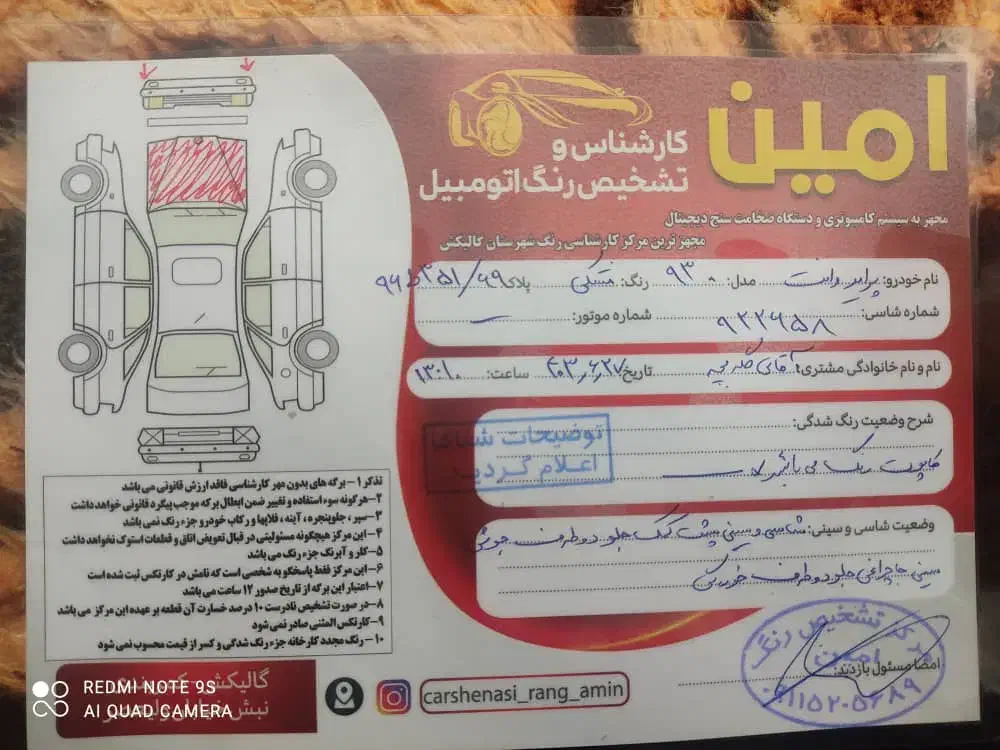 امین
کارشناس و
تشخیص رنگ اتومبیل
مجهز به سیستم کامپیوتری و دستگاه ضخامت سنج دیجیتال
مجهزترین مرکز کارشناسی رنگ شهرستان گالیکش
نام خودرو: پراید وانت مدل: ۹۳ رنگ: مشکی پلاک
شماره شاسی: ۹۲۲۶۵۸ شماره موتور: —
نام و نام خانوادگی مشتری: آقای تاریخ ۴۰۳،۶،۲۷ ساعت: ۱۳:۱۰
شرح وضعیت رنگ شدگی:
توضیحات شفاها
اعلام گردید
کاپوت رنگ می باشد
وضعیت شاسی و سینی: شاسی و سینی پشت کمک جلو دو طرف جوشی
سینی جاچراغی جلو دو طرف خوردگی
امضا مسئول بازدید:
مرکز تشخیص رنگ
امین
۰۹۱۱۵۲۰۵۶۸۹
تذکر ۱- برگه های بدون مهر کارشناسی فاقد ارزش قانونی می باشد
۲- هرگونه سوء استفاده و تغییر ضمن ابطال برگه موجب پیگرد قانونی خواهد داشت
۳- سپر، جلوپنجره، آینه، قلابها و رکاب خودرو جزء رنگ نمی باشد
۴- این مرکز هیچگونه مسئولیتی در قبال تعویض اتاق و قطعات استوک نخواهد داشت
۵- کار و آبرنگ جزء رنگ می باشد
۶- این مرکز فقط پاسخگو به شخصی است که نامش در کارتکس ثبت شده است
۷- اعتبار این برگه از تاریخ صدور ۱۲ ساعت می باشد
۸- در صورت تشخیص نادرست ۱۰ درصد خسارت آن قطعه بر عهده این مرکز می باشد
۹- کارتکس المثنی صادر نمی شود
۱۰- رنگ مجدد کارخانه جزء رنگ شدگی و کسر از قیمت محسوب نمی شود
گالیکش
نبش
carshenasi_rang_amin
REDMI NOTE 9S
AI QUAD CAMERA